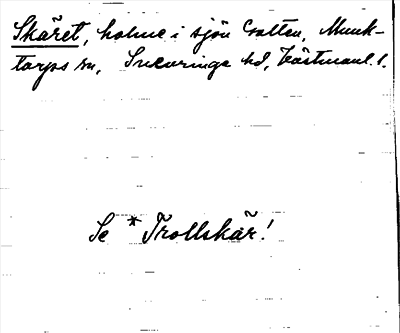 Skäret, holme i sjön Gatten, Munk-
torps sn, Snevringe hd, Västmanl. l.
Se *Trollskär!